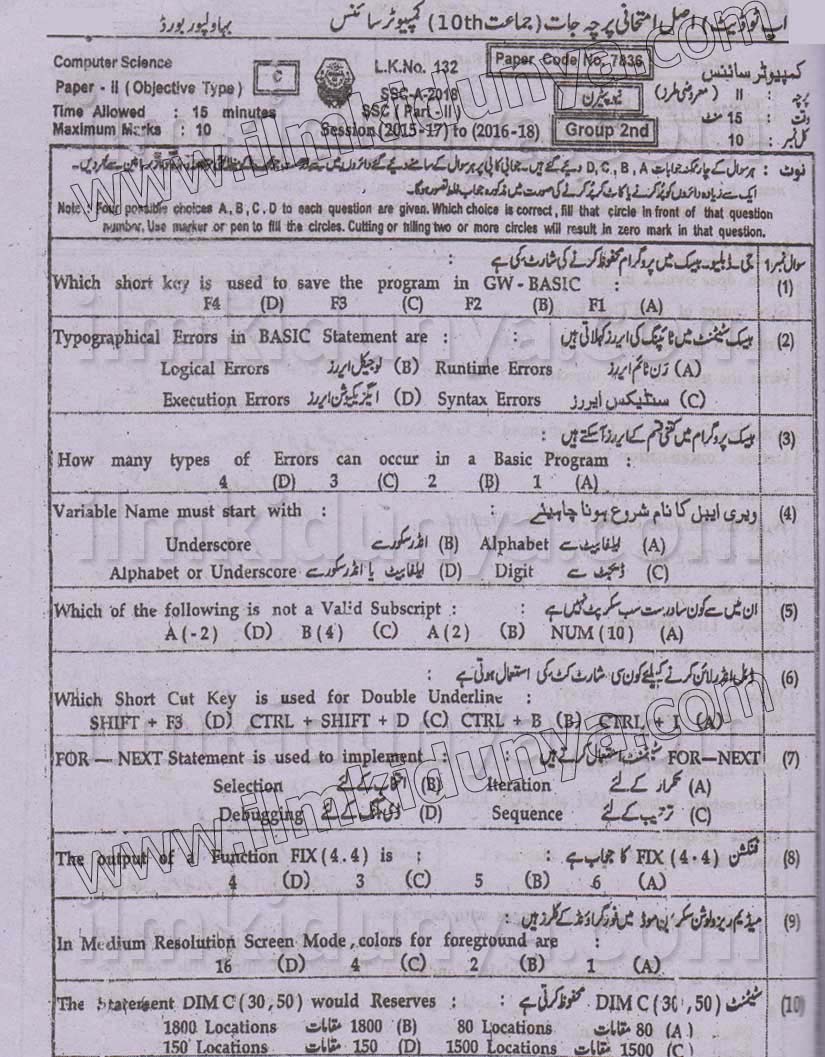 اپ ٹو ڈیٹ / اصل امتحانی پرچہ جات (جماعت 10th) کمپیوٹر سائنس بہاولپور بورڈ
Computer Science C L.K.No. 132 Paper Code No. 7836 کمپیوٹر سائنس
Paper - II (Objective Type) SSC-A-2018 نیو پیٹرن پرچہ : II (معروضی طرز)
Time Allowed : 15 minutes SSC (Part - II) وقت : 15 منٹ
Maximum Marks : 10 Session (2015-17) to (2016-18) Group 2nd کل نمبر : 10
نوٹ : ہر سوال کے چار ممکنہ جوابات D, C, B, A دیے گئے ہیں۔ جوابی کاپی پر ہر سوال کے سامنے دیے گئے دائروں میں سے
ایک سے زیادہ دائروں کو پُر کرنے یا کاٹ کر پُر کرنے کی صورت میں مذکورہ جواب غلط تصور ہوگا۔
Note : Four possible choices A, B, C, D to each question are given. Which choice is correct, fill that circle in front of that question
number. Use marker or pen to fill the circles. Cutting or filling two or more circles will result in zero mark in that question.
سوال نمبر 1 جی ڈبلیو۔ بیسک میں پروگرام محفوظ کرنے کی شارٹ کی ہے :
Which short key is used to save the program in GW-BASIC : (1)
F4 (D) F3 (C) F2 (B) F1 (A)
Typographical Errors in BASIC Statement are : : بیسک سٹیٹمنٹ میں ٹائپنگ کی ایررز کہلاتی ہیں (2)
Logical Errors لوجیکل ایررز (B) Runtime Errors رن ٹائم ایررز (A)
Execution Errors ایگزیکیوشن ایررز (D) Syntax Errors سنٹیکس ایررز (C)
بیسک پروگرام میں کتنی قسم کے ایررز آسکتے ہیں : (3)
How many types of Errors can occur in a Basic Program :
4 (D) 3 (C) 2 (B) 1 (A)
Variable Name must start with : : ویری ایبل کا نام شروع ہونا چاہیئے (4)
Underscore انڈر سکور سے (B) Alphabet ایلفابیٹ سے (A)
Alphabet or Underscore ایلفابیٹ یا انڈر سکور سے (D) Digit ڈیجٹ سے (C)
Which of the following is not a Valid Subscript : : ان میں سے کون سا درست سب سکرپٹ نہیں ہے (5)
A(-2) (D) B(4) (C) A(2) (B) NUM(10) (A)
ڈبل انڈر لائن کرنے کیلئے کون سی شارٹ کٹ کی استعمال ہوتی ہے : (6)
Which Short Cut Key is used for Double Underline :
SHIFT + F3 (D) CTRL + SHIFT + D (C) CTRL + B (B) CTRL + I (A)
FOR — NEXT Statement is used to implement : : FOR—NEXT سٹیٹمنٹ استعمال کرتے ہیں (7)
Selection انتخاب کے لئے (B) Iteration تکرار کے لئے (A)
Debugging ڈی بگنگ کے لئے (D) Sequence ترتیب کے لئے (C)
The output of a Function FIX(4.4) is : : فنکشن FIX(4.4) کا جواب ہے (8)
4 (D) 3 (C) 5 (B) 6 (A)
میڈیم ریزولوشن سکرین موڈ میں فور گراؤنڈ کے کلرز ہیں : (9)
In Medium Resolution Screen Mode, colors for foreground are :
16 (D) 4 (C) 2 (B) 1 (A)
The Statement DIM C(30,50) would Reserves : : سٹیٹمنٹ DIM C(30,50) محفوظ کرتی ہے (10)
1800 Locations 1800 مقامات (B) 80 Locations 80 مقامات (A)
150 Locations 150 مقامات (D) 1500 Locations 1500 مقامات (C)
www.ilmkidunya.com
www.ilmkidunya.com
ilmkidunya.com
ilmkidunya.com
ilmkidunya.com